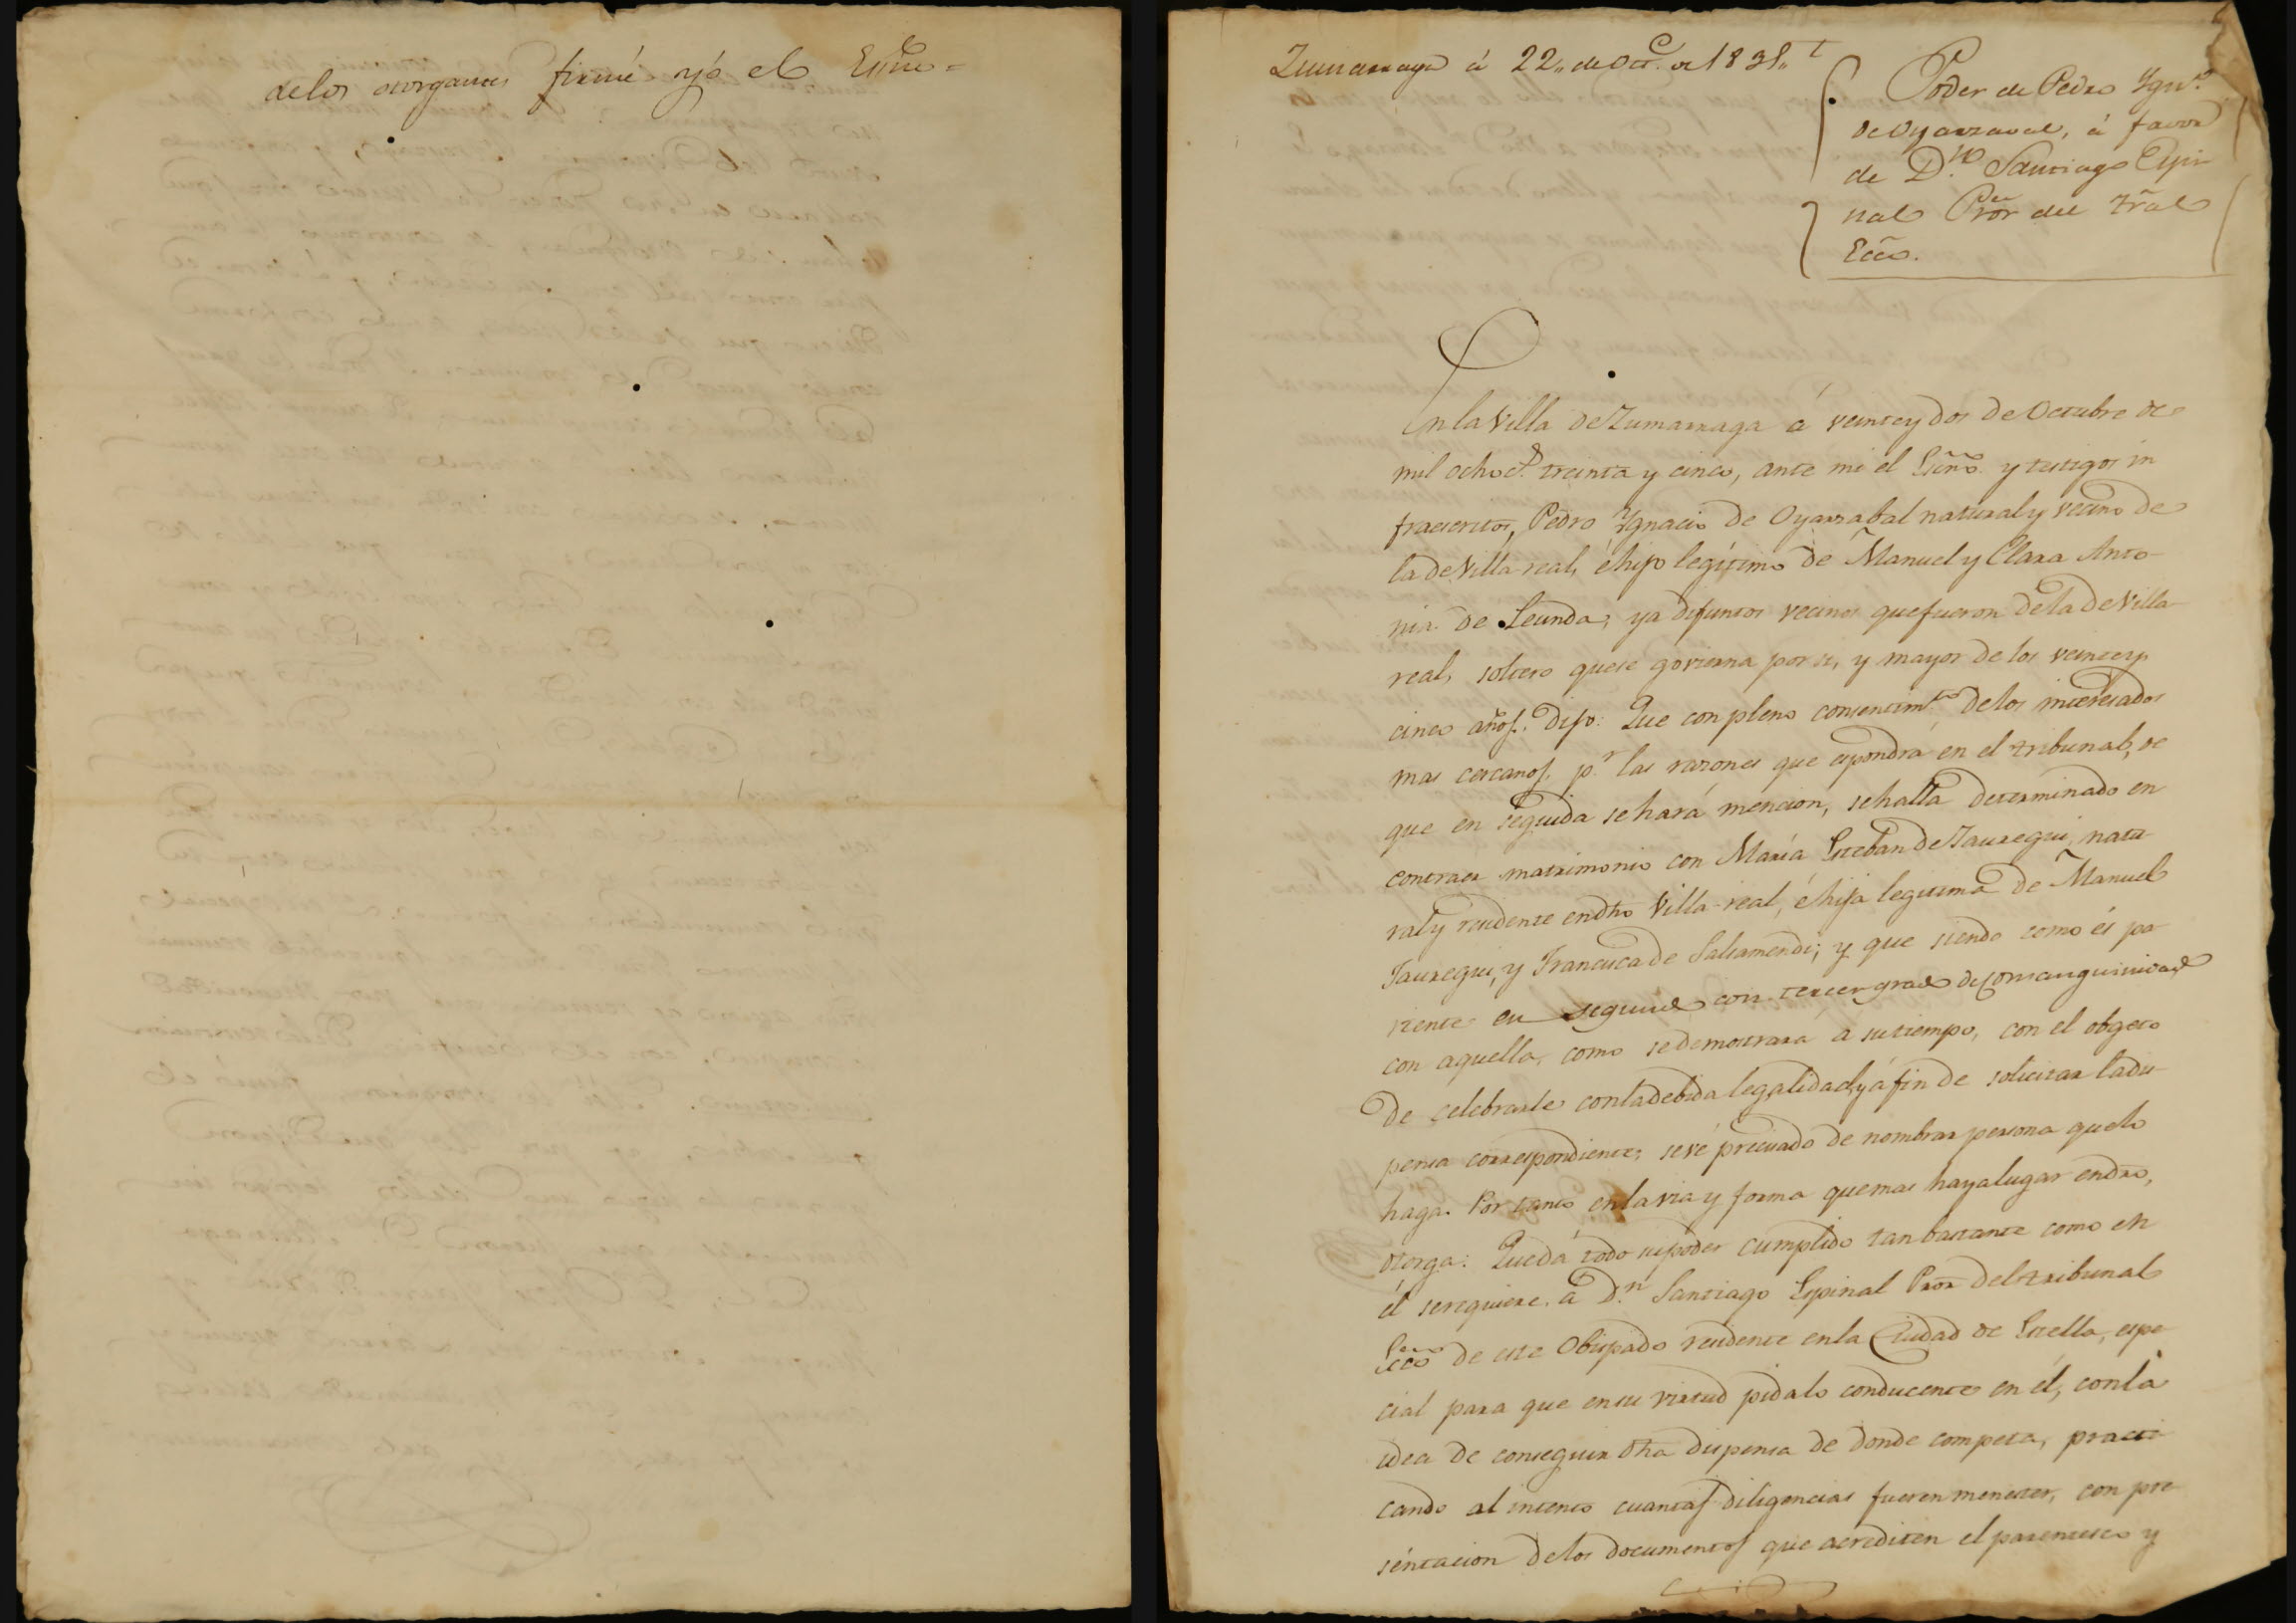 delos otorgantes firmé yó el Essno=
Zumarraga à 22,, de Oct.e de 1835,,
Poder de Pedro Ygn.o
de Oyarzaval, á favor
de D.n Santiago Espi-
nal Pror del trãl
Ecco.
En la Villa de Zumarraga á veinte y dos de Octubre de
mil ocho c.s treinta y cinco, ante mi el Esño. y testigos in
fraescritos, Pedro Ygnacio de Oyarzabal natural y vecino de
la de Villa real, é hijo legítimo de Manuel y Clara Anto-
nia de Leunda, ya difuntos vecinos que fueron dela de Villa-
real, soltero que se govierna por si, y mayor de los veinte y
cinco años: Dijo: Que con pleno consentim.to delos interesados
mas cercanos, p.r las razones que espondrá en el tribunal, de
que en seguida se hará mencion, se halla determinado en
contraer matrimonio con María Esteban de Jauregui, natu-
ral y residente en dho Villa-real, é hija legitima de Manuel
Jauregui, y Francisca de Salsamendi; y que siendo como és pa-
riente en segundo con tercer grado de consanguinidad
con aquella, como se demostrara a su tiempo, con el objeto
de celebrarle con la debida legalidad, y á fin de solicitar la dis-
pensa correspondiente; se vé precisado de nombrar persona que lo
haga. Por tanto en la via y forma que mas haya lugar en dro,
otorga: Que dá todo su poder cumplido tan bastante como en
él se requiere. á D.n Santiago Espinal Pror del tribunal
Ecco de este Obispado residente en la Ciudad de Estella, espe
cial para que en su virtud pida lo conducente en él, con la
idea de conseguir dha dispensa de donde competa, practi-
cando al intento cuantas diligencias fueren menester, con pre
séntacion delos documentos que acrediten el parentesco y